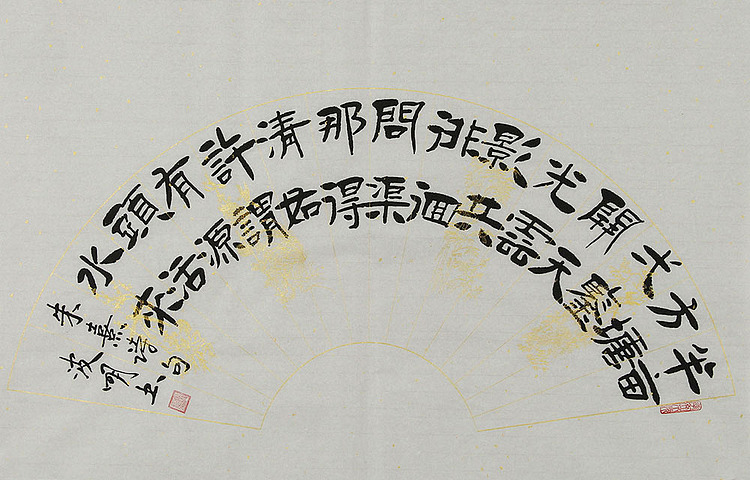 半亩
方塘
弌鑒
開天
光雲
影共
徘洄
問渠
那得
清如
許謂
有源
頭活
水來
朱熹詩句
波明书